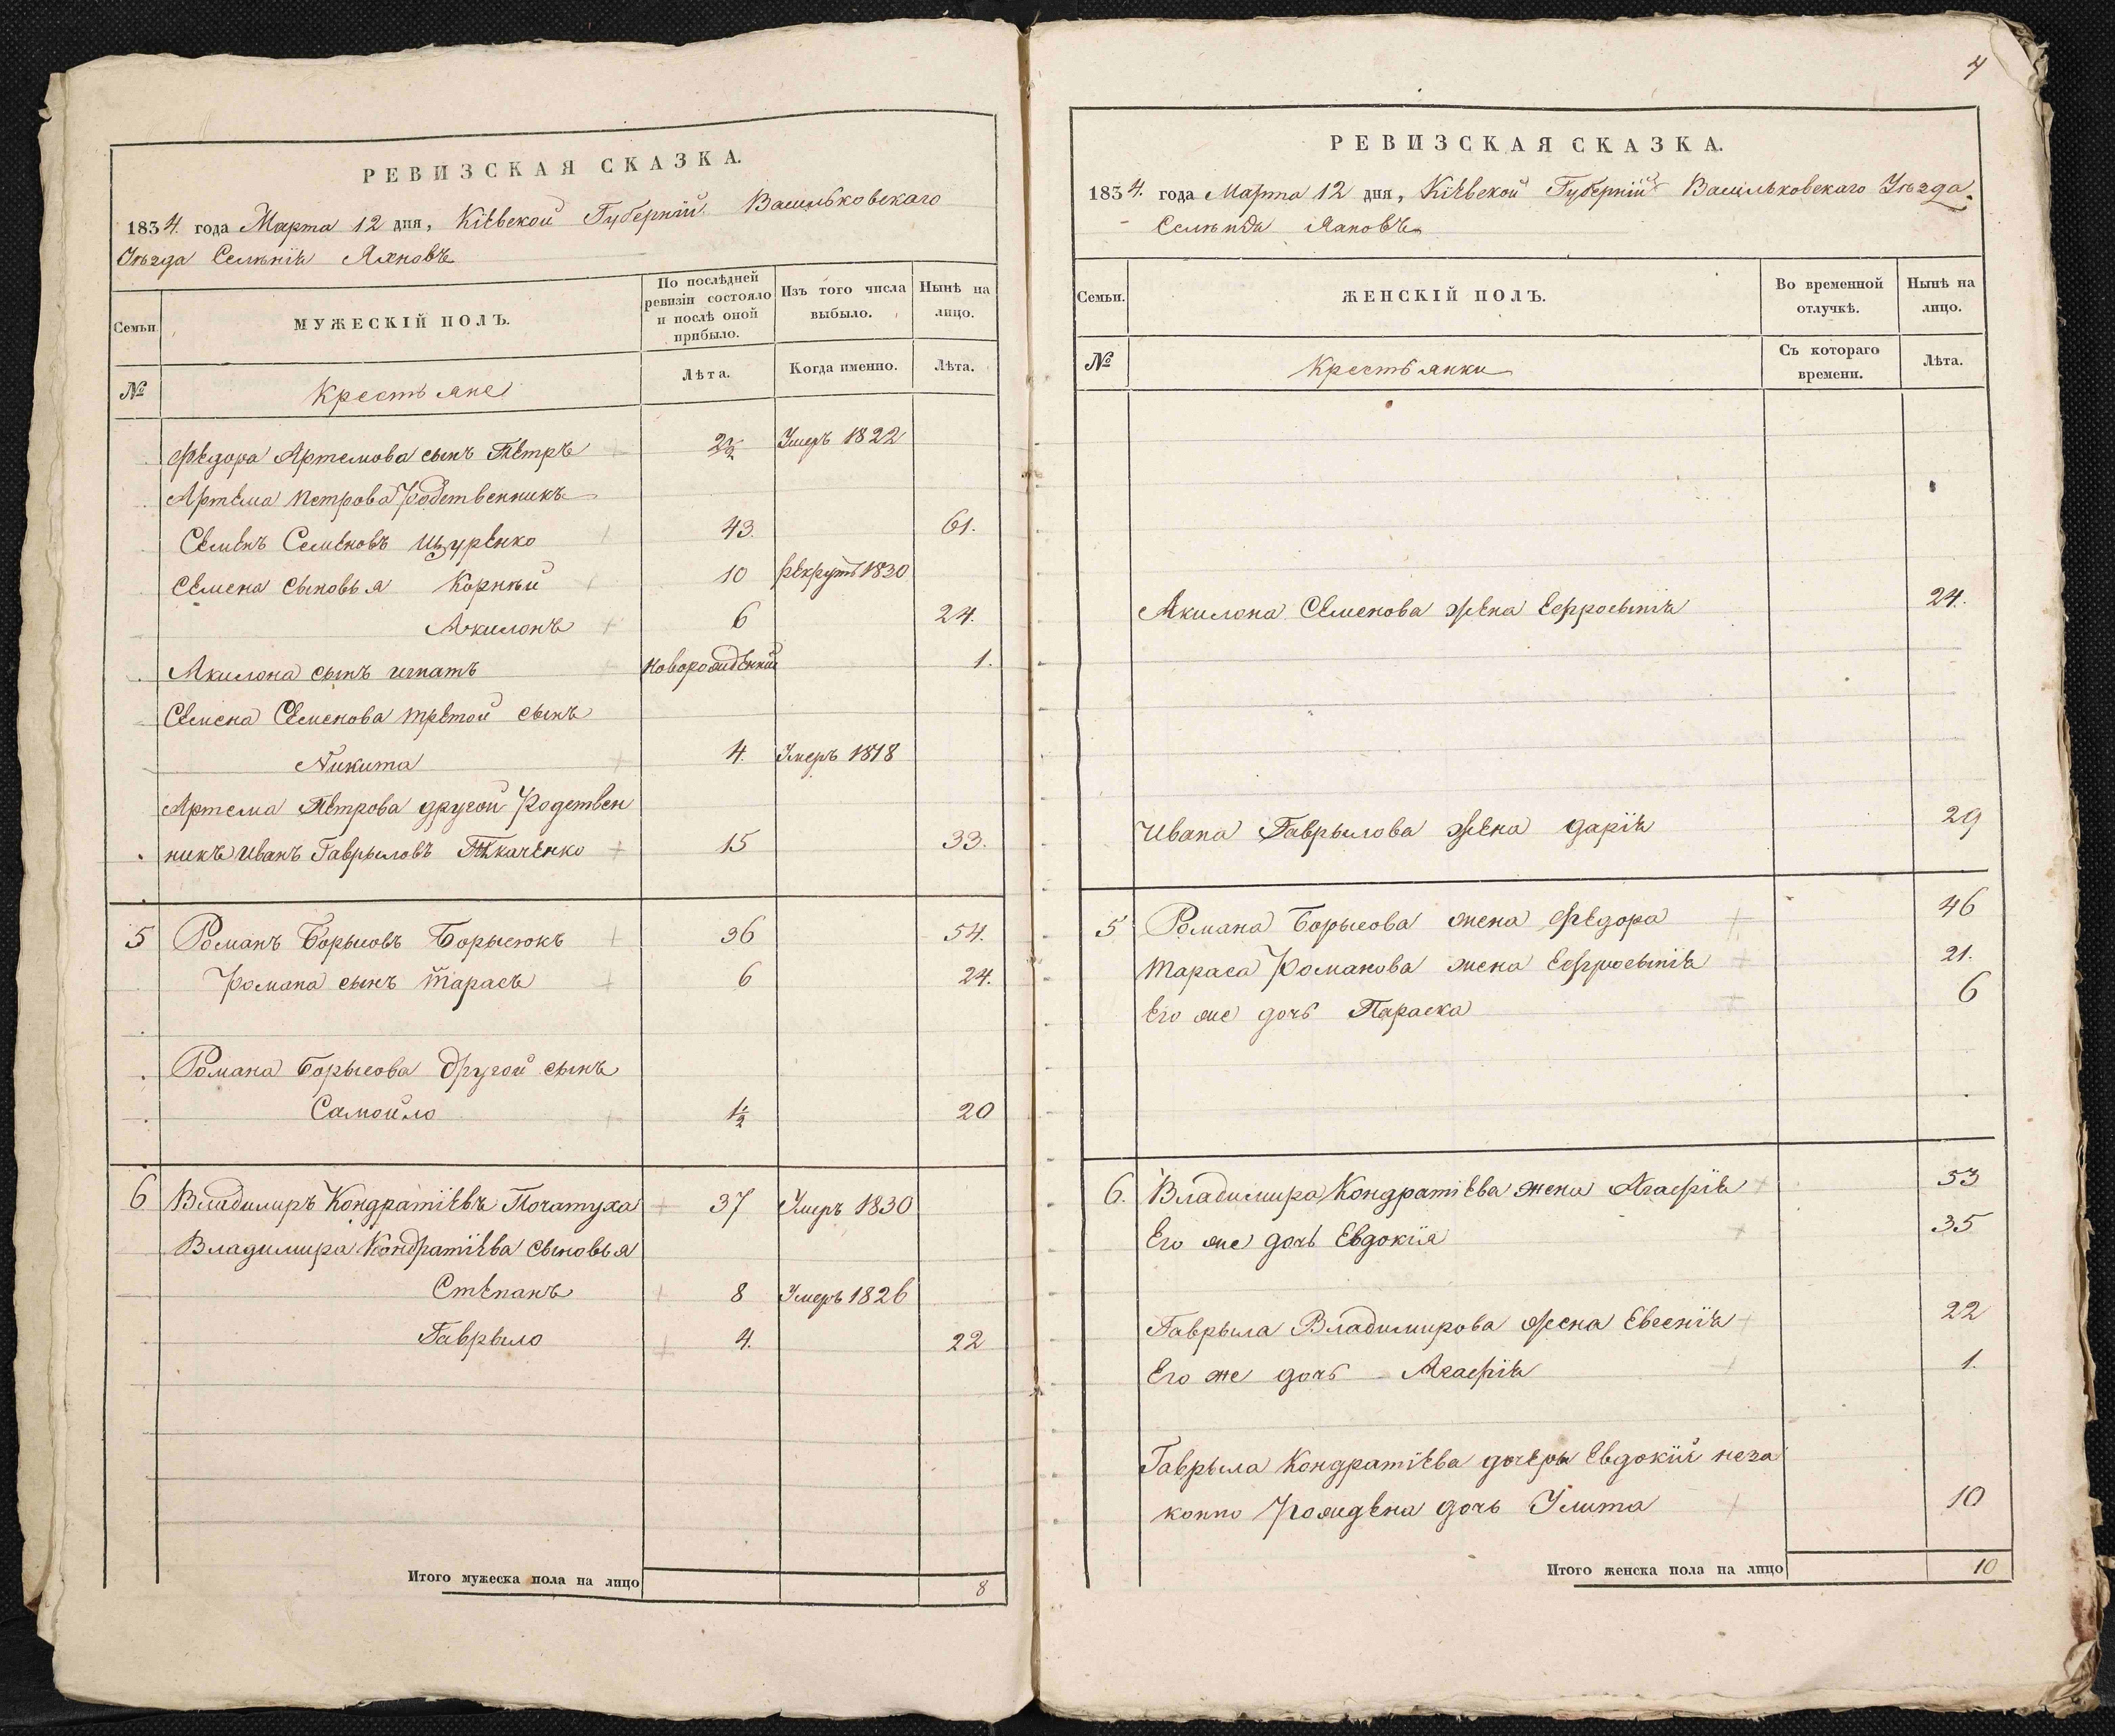 РЕВИЗСКАЯ СКАЗКА.
1834. года Марта 12 дня, Кіевской Губерніи Васильковскаго
Уѣзда Селѣнія Яхновъ
Семьи.
МУЖЕСКІЙ ПОЛЪ.
По послѣдней ревизіи состояло и послѣ оной прибыло.
Изъ того числа выбыло.
Нынѣ на лицо.
№
Крестьяне
Лѣта.
Когда именно.
Лѣта.
Федора Артемова сынъ Петръ 2 1/2 Умеръ 1822
Артема Петрова Родственникъ
Семенъ Семеновъ Щуренко 43. 61.
Семена сыновья Корнѣй 10 рекрутъ 1830
Акилонъ 6 24.
Акилона сынъ игнатъ новорожденный 1.
Семена Семенова третой сынъ
Никита 4. Умеръ 1818
Артема Петрова другой Родствен
никъ Иванъ Гаврыловъ Ткаченко 15 33.
5 Романъ Борысовъ Борысюкъ 36 54.
Романа сынъ Тарасъ 6 24.
Романа Борысова другой сынъ
Самойло 1/2 20
6 Владимиръ Кондратіевъ Початуха 37 Умеръ 1830
Владимира Кондратіева сыновья
Степанъ 8 Умеръ 1826
Гаврыло 4. 22
Итого мужеска пола на лицо 8
РЕВИЗСКАЯ СКАЗКА.
1834. года Марта 12 дня, Кіевской Губерніи Васильковскаго Уѣзда.
Селѣнія Яхновъ
Семьи.
ЖЕНСКІЙ ПОЛЪ.
Во временной отлучкѣ.
Нынѣ на лицо.
№
Крестьянки
Съ котораго времени.
Лѣта.
Акилона Семенова жена Ефросынія 24.
Ивана Гаврылова жена дарія 29
5 Романа Борысова жена Федора 46
Тараса Романова жена Ефросынія 21.
Его же дочь Параска 6
6. Владимира Кондратіева жена Агафія 53
Его же дочь Евдокія 35
Гаврыла Владимирова жена Евсенія 22
Его же дочь Агафія 1.
Гаврыла Кондратіева дочеры Евдокіи неза
конно Рождена дочь Улита 10
Итого женска пола на лицо 10